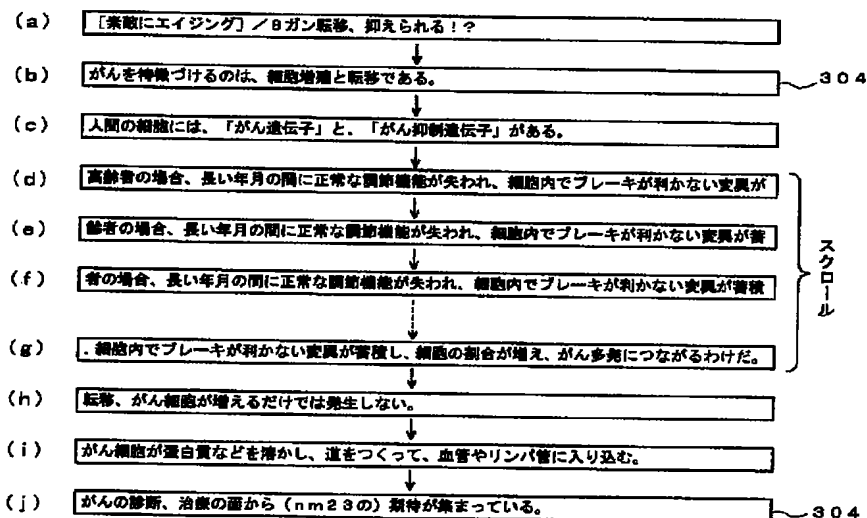 (a) [素敵にエイジング]／8ガン転移、抑えられる!?
(b) がんを特徴づけるのは、細胞増殖と転移である。 304
(c) 人間の細胞には、「がん遺伝子」と、「がん抑制遺伝子」がある。
(d) 高齢者の場合、長い年月の間に正常な調節機能が失われ、細胞内でブレーキが利かない変異が
(e) 齢者の場合、長い年月の間に正常な調節機能が失われ、細胞内でブレーキが利かない変異が蓄
(f) 者の場合、長い年月の間に正常な調節機能が失われ、細胞内でブレーキが利かない変異が蓄積
スクロール
(g) .細胞内でブレーキが利かない変異が蓄積し、細胞の割合が増え、がん多発につながるわけだ。
(h) 転移、がん細胞が増えるだけでは発生しない。
(i) がん細胞が蛋白質などを溶かし、道をつくって、血管やリンパ管に入り込む。
(j) がんの診断、治療の面から(nm23の)期待が集まっている。 304